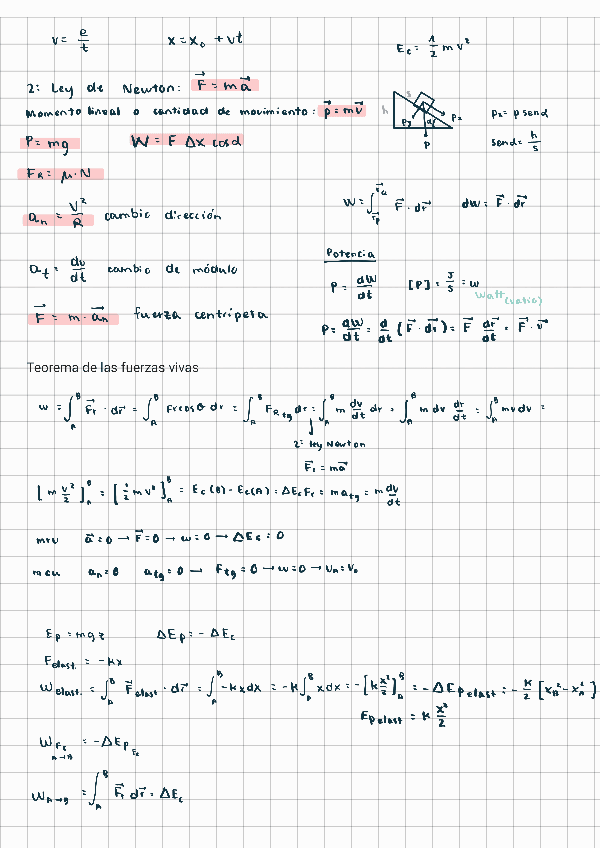 v = e/t    x = x₀ + vt    Ec = 1/2 m v²
2ª Ley de Newton: F⃗ = m a⃗
Momento lineal o cantidad de movimiento: p⃗ = m v⃗
h s Py α Px P
Px = p senα
senα = h/s
P = mg    W = F Δx cosα
F_R = μ·N
W = ∫ F⃗ · dr⃗    dW = F⃗ · dr⃗
aₙ = v²/R cambio dirección
Potencia
a_t = dv/dt cambio de módulo
P = dW/dt    [P] = J/s = W
Watt (vatio)
F⃗ = m · a⃗ₙ fuerza centrípeta
P = dW/dt = d/dt (F⃗ · dr⃗) = F⃗ dr⃗/dt = F⃗ · v⃗
Teorema de las fuerzas vivas
w = ∫_A^B F⃗r · dr⃗ = ∫_A^B Fr cosθ dr = ∫_A^B F_R tg dr = ∫_A^B m dv/dt dr = ∫_A^B m dv dr/dt = ∫_A^B m v dv =
2ª ley Newton
F⃗r = m a⃗
[m v²/2]_A^B = [1/2 m v²]_A^B = Ec(B) - Ec(A) = ΔEc Fr = m a_tg = m dv/dt
mru    a⃗ = 0 → F⃗ = 0 → w = 0 → ΔEc = 0
mcu    aₙ = 0    a_tg = 0 → F_tg = 0 → w = 0 → V_A = V₀
Ep = mgz    ΔEp = - ΔEc
F elast. = -kx
W elast. = ∫_A^B F⃗ elast · dr⃗ = ∫_A^B -kx dx = -k ∫_A^B x dx = -[k x²/2]_A^B = -ΔEp elast = -k/2 [x_B² - x_A²]
Ep elast = k x²/2
W_Fc A→B = -ΔEp Ec
W_A→B = ∫_A^B F⃗r dr⃗ = ΔEc